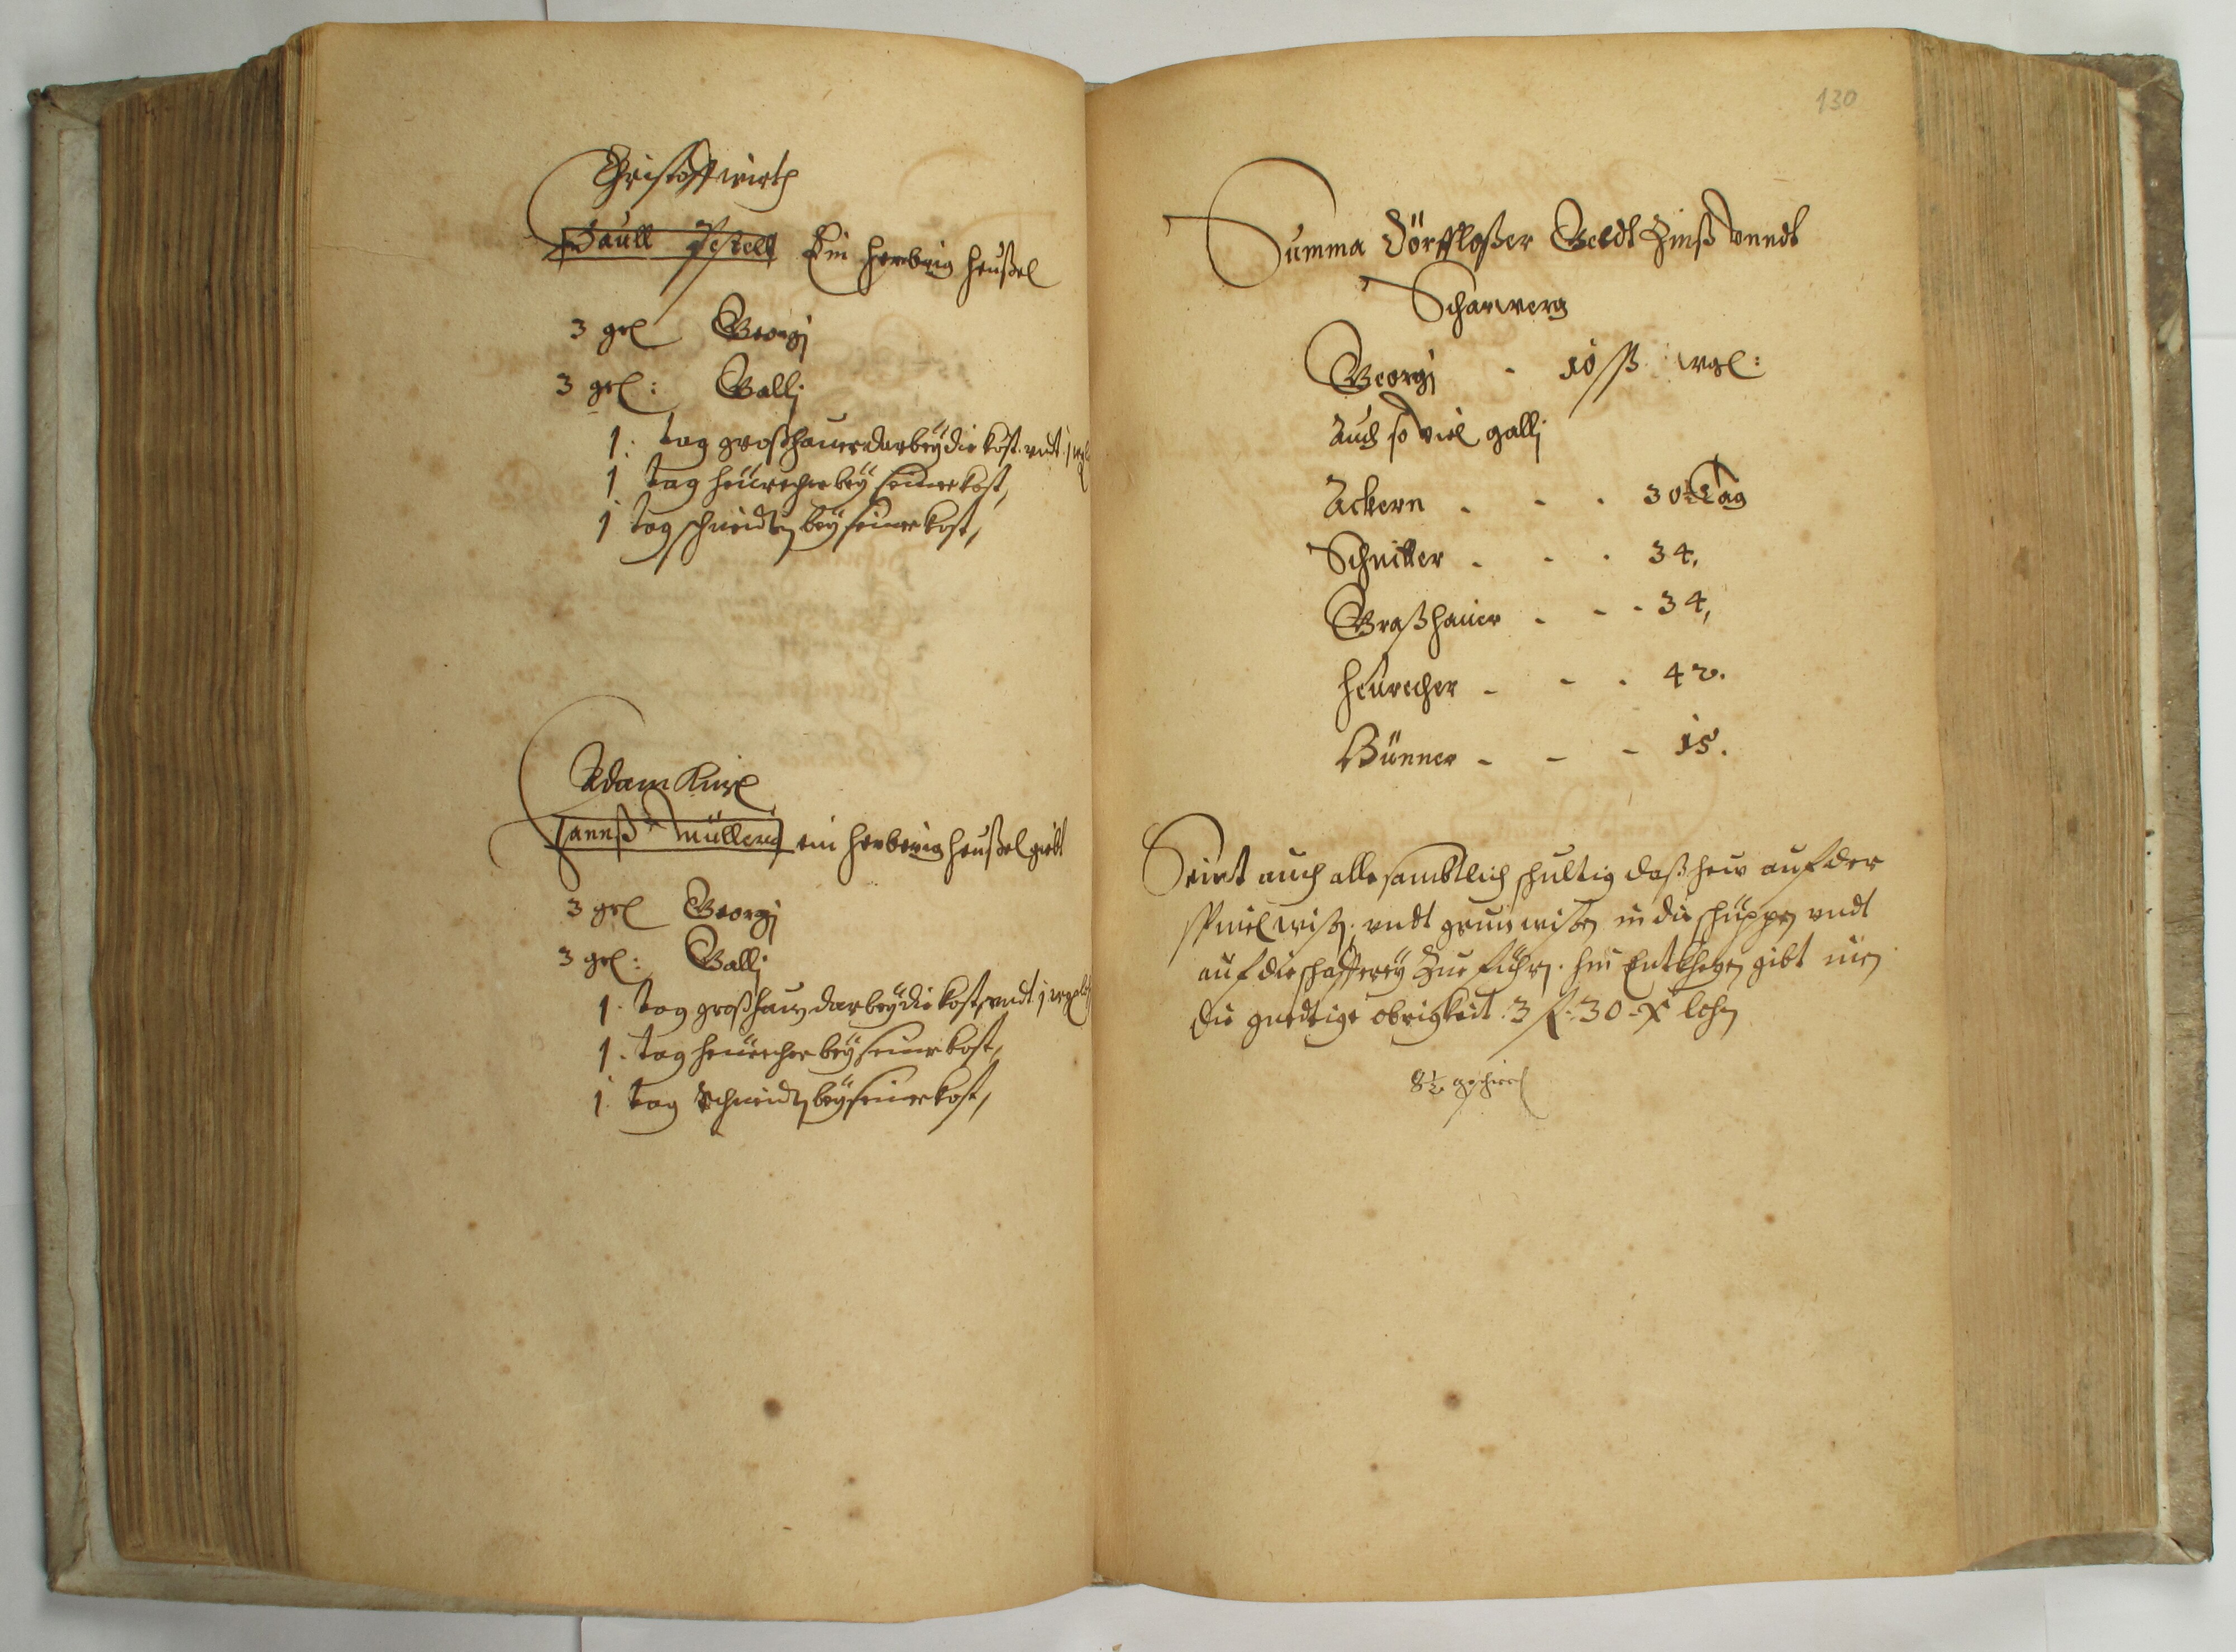 Christoff wirth
Paull Pestell Ein herbrig heußel
3 grl Georgj
3 grl: Gallj
1: tag großhauer darbeÿ die kost. undt 1
1 tag heürecher beÿ seiner kost,
1 tag schneidten beÿ seiner kost,
Adam
Hannß Müllern ein herbrig heußel giebt
3 grl Georgj
3 grl: Gallj
1. tag großhauen darbeÿ die kost, undt 1
1. tag heürecher beÿ seiner kost,
1. tag Schneidten beÿ seiner kost,
130
Summa Dörffloßer Geldt Zinß vnndt
Scharwerg
Georgj - 10 ß wgl:
Auch so viel gallj
Ackern - - - 30½ Tag
Schnitter - - - 34,
Graßhauer - - - 34,
Heurecher - - - 42.
Bünner - - - 15.
Seint auch alle sambtlich schultig daß heu auf der
undt wißen in die schüppen undt
auf die schafferey Zue führen. hin Entkhegen gibt
die gnedtige obrigkeit 3 f. 30 x lohn
8½